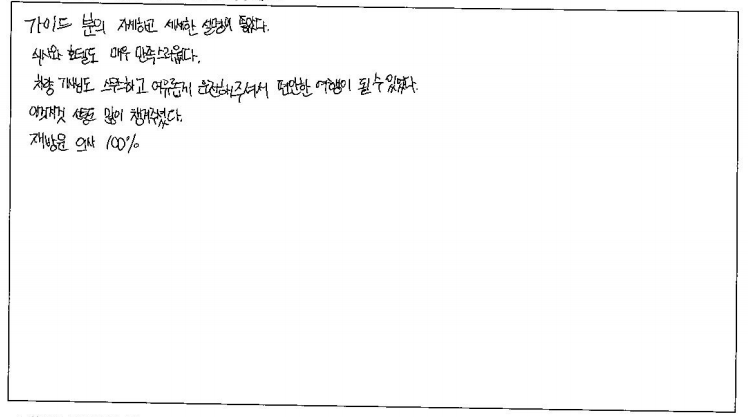 가이드 분의 자세하고 세세한 설명이 좋았다.
식사와 호텔도 매우 만족스러웠다.
차량 기사님도 스무스하고 여유롭게 운전해주셔서 편안한 여행이 될 수 있었다.
이것저것 선물도 많이 챙겨주셨다.
재방문 의사 100%